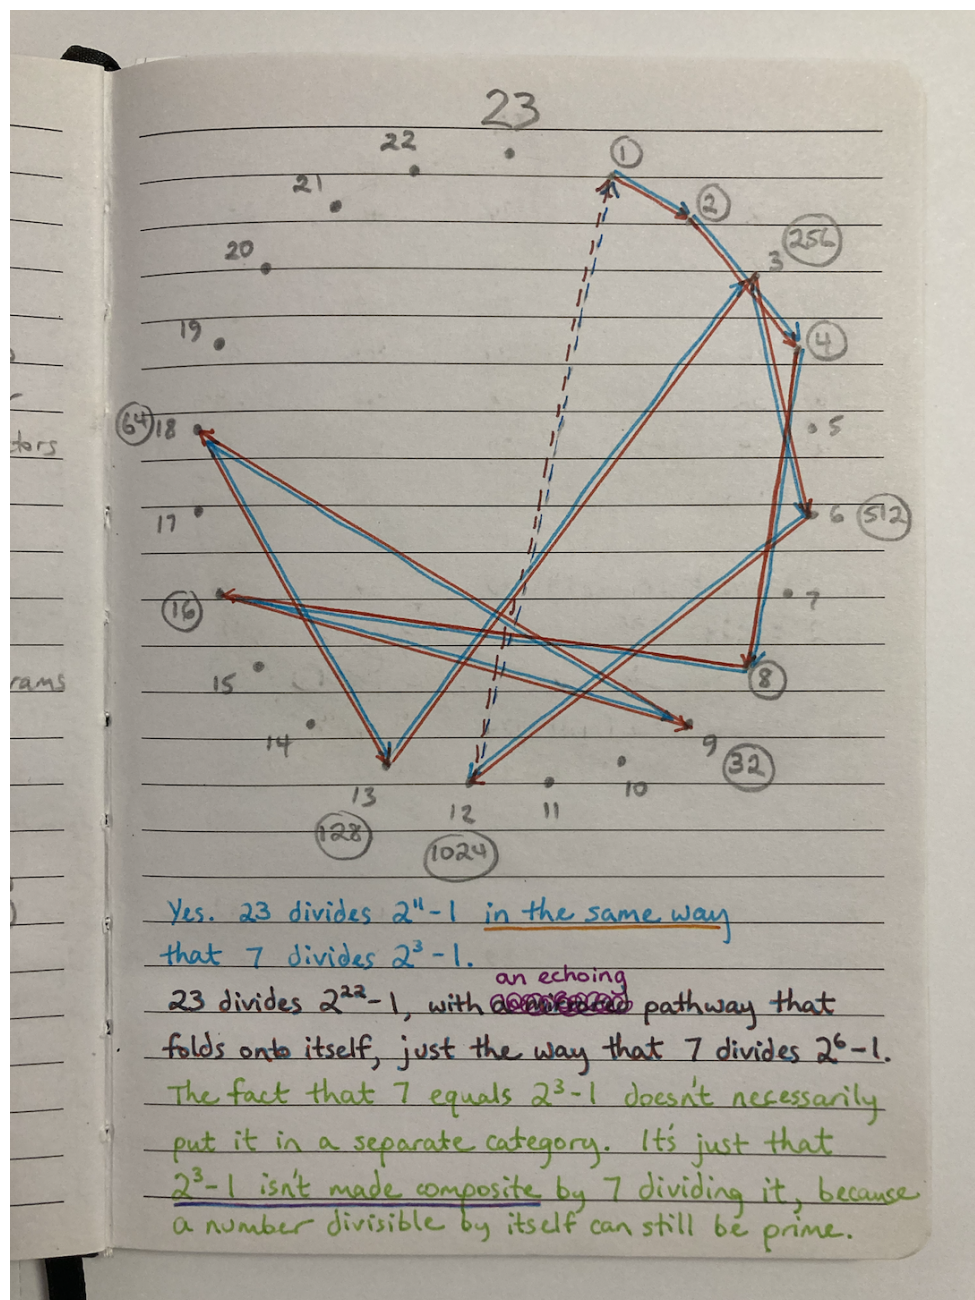 23
22
1
21
2
256
3
20
19
4
64 18
5
17
6 512
7
16
8
15
14
9
32
10
13
12
11
128
1024
tors
rams
Yes. 23 divides 2¹¹-1 in the same way
that 7 divides 2³-1.
an echoing
23 divides 2²²-1, with pathway that
folds onto itself, just the way that 7 divides 2⁶-1.
The fact that 7 equals 2³-1 doesn't necessarily
put it in a separate category. It's just that
2³-1 isn't made composite by 7 dividing it, because
a number divisible by itself can still be prime.